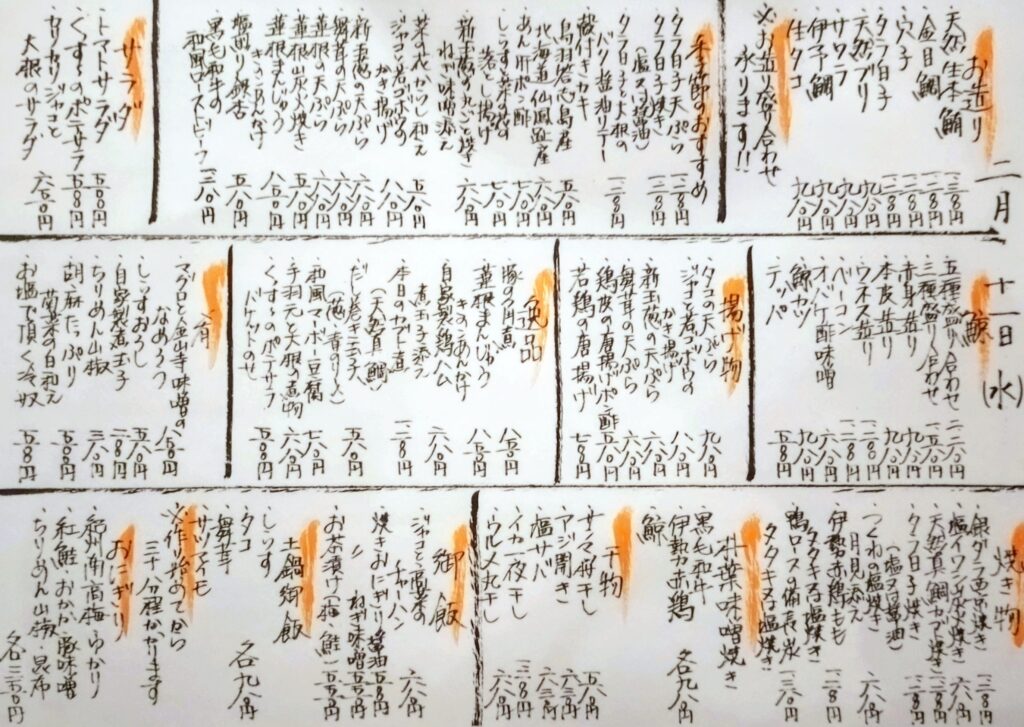 二月十一日(水)
お造り
・天然生本鮪 一三八〇円
・金目鯛 一二八〇円
・穴子 一二八〇円
・タラ白子 一二八〇円
・天然ブリ 九八〇円
・サワラ 九八〇円
・伊予鯛 九八〇円
・生タコ 九八〇円
※お造り盛り合わせ
承ります!!
季節のおすすめ
・タラ白子天ぷら 一二八〇円
・タラ白子焼き
(塩又は醤油) 一二八〇円
・タラ白子と大根の
バター醤油ソテー 一二八〇円
・殻付きカキ
鳥羽答志島産 五八〇円
・北海道仙鳳趾産 六八〇円
・あん肝ポン酢 七八〇円
・しらすと海苔の
落とし揚げ 七八〇円
・新玉葱の丸ごと焼き
ねぎ味噌添え 六八〇円
・菜の花からし和え 五八〇円
・ジャコと若ゴボウの
かき揚げ 八八〇円
・新玉葱の天ぷら 六八〇円
・舞茸の天ぷら 六八〇円
・蓮根の天ぷら 六八〇円
・蓮根炭火焼き 五八〇円
・蓮根まんじゅう
きのこあんかけ 八五〇円
・塩煎り銀杏 五八〇円
・黒毛和牛の
和風ローストビーフ 一三八〇円
サラダ
・トマトサラダ 五五〇円
・くずしのポテサラ 五八〇円
・カリカリジャコと
大根のサラダ 六五〇円
鯨
・五種盛り合わせ 二二八〇円
・三種盛り合わせ 一五八〇円
・赤身造り 九八〇円
・本皮造り 九八〇円
・ウネス造り
・ベーコン
・オバケ酢味噌
・鯨カツ
・テッパ
揚げ物
・タコの天ぷら 九八〇円
・ジャコと若ゴボウの
かき揚げ 八八〇円
・新玉葱の天ぷら 六八〇円
・舞茸の天ぷら 六八〇円
・鶏皮の唐揚げポン酢 五八〇円
・若鶏の唐揚げ 七八〇円
逸品
・豚の角煮 八五〇円
・蓮根まんじゅう
きのこあんかけ 八五〇円
・自家製鶏ハム
煮玉子添え 六八〇円
・本日のカブト煮
(天然真鯛) 八八〇円
・だし巻き玉子
(葱・青のり) 五八〇円
・和風マーボー豆腐 七八〇円
・手羽元と大根の煮物 六八〇円
・くずしのポテサラ
バケットのせ 五八〇円
肴
・マグロと金山寺味噌の
なめろう 八五〇円
・しらすおろし 五八〇円
・自家製煮玉子 二八〇円
・ちりめん山椒 三八〇円
・胡麻たっぷり
菊菜の白和え 五五〇円
・お塩で頂く冷奴 五五〇円
焼き物
・銀ダラ西京焼き 一二八〇円
・塩イワシ炭火焼き 六八〇円
・天然真鯛カブト焼き 一二八〇円
・タラ白子焼き
(塩又は醤油) 一二八〇円
・つくねの塩焼き
月見添え 六八〇円
・伊勢赤鶏もも
タタキ又は塩焼き 一二八〇円
・鴨ロースの備長炭
タタキ又は塩焼き 一三八〇円
朴葉味噌焼き
・黒毛和牛
・伊勢赤鶏
・鯨 各九八〇円
干物
・サンマ丸干し 五八〇円
・アジ開き 六三〇円
・塩サバ 六三〇円
・イカ一夜干し
・ウルメ丸干し
御飯
・ジャコと高菜の
チャーハン 六八〇円
・焼きおにぎり 醤油 五五〇円
・〃 ねぎ味噌 五五〇円
・お茶漬け(梅・鮭) 五五〇円
土鍋御飯
・しらす
・タコ
・舞茸
・サツマイモ 各九八〇円
※作り始めてから
三十八分程かかります
おにぎり
・紀州南高梅・ゆかり
・紅鮭・おかか・豚味噌
・ちりめん山椒・昆布
各三五〇円